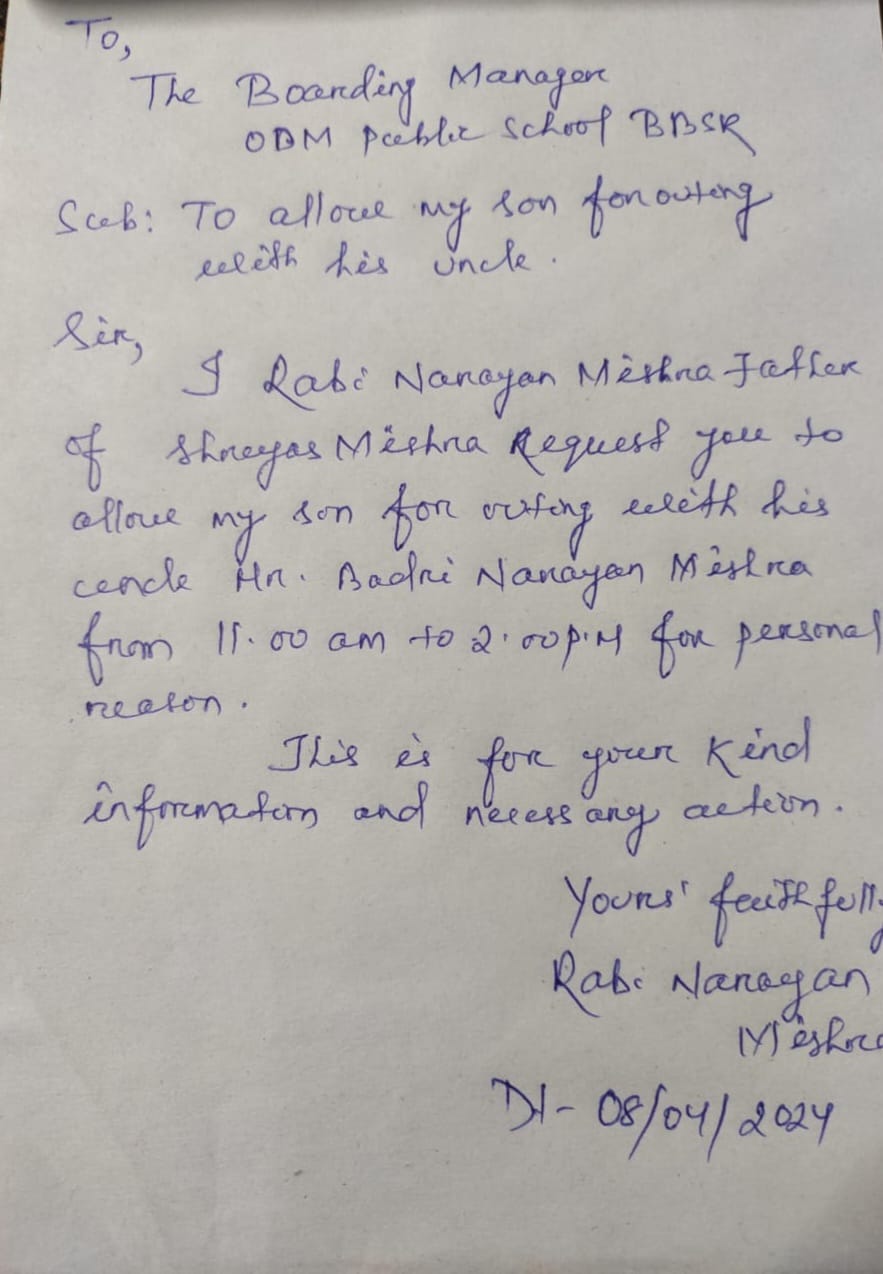 To,
The Boarding Manager
ODM Public School BBSR
Sub: To allow my son for outing
with his uncle.
Sir,
I Rabi Narayan Mishra Father
of Shreyas Mishra Request you to
allow my son for outing with his
uncle Mr. Badri Narayan Mishra
from 11.00 am to 2.00 p.M for personal
reason.
This is for your kind
information and necessary action.
Yours' faithfully
Rabi Narayan
Mishra
Dt- 08/04/2024